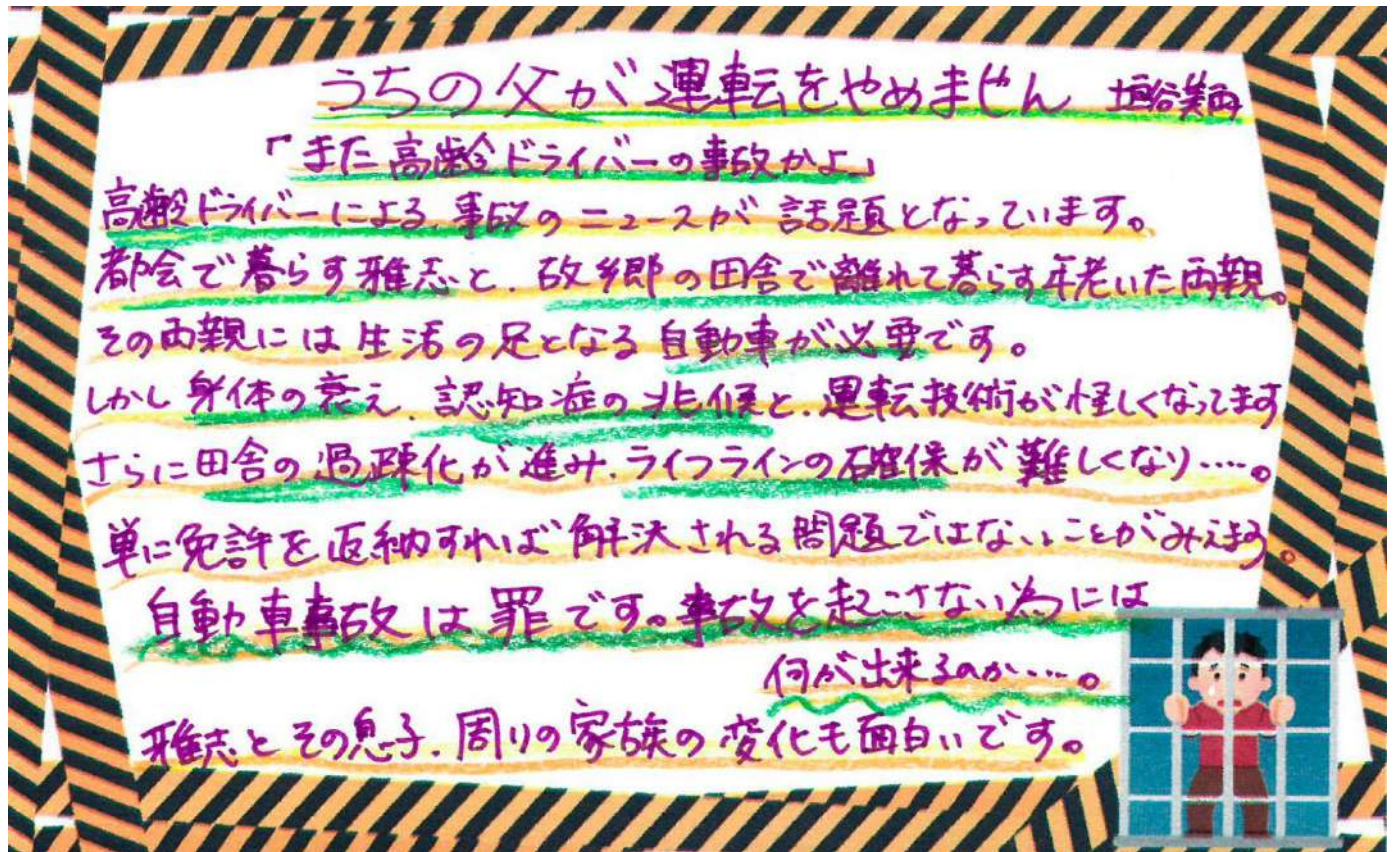 うちの父が運転をやめません 垣谷美雨
「また高齢ドライバーの事故かよ」
高齢ドライバーによる、事故のニュースが話題となっています。
都会で暮らす雅志と、故郷の田舎で離れて暮らす年老いた両親。
その両親には生活の足となる自動車が必要です。
しかし身体の衰え、認知症の兆候と、運転技術が怪しくなってます
さらに田舎の過疎化が進み、ライフラインの確保が難しくなり‥‥。
単に免許を返納すれば解決される問題ではないことがみえます。
自動車事故は罪です。事故を起こさない為には
何が出来るのか‥‥。
雅志とその息子、周りの家族の変化も面白いです。